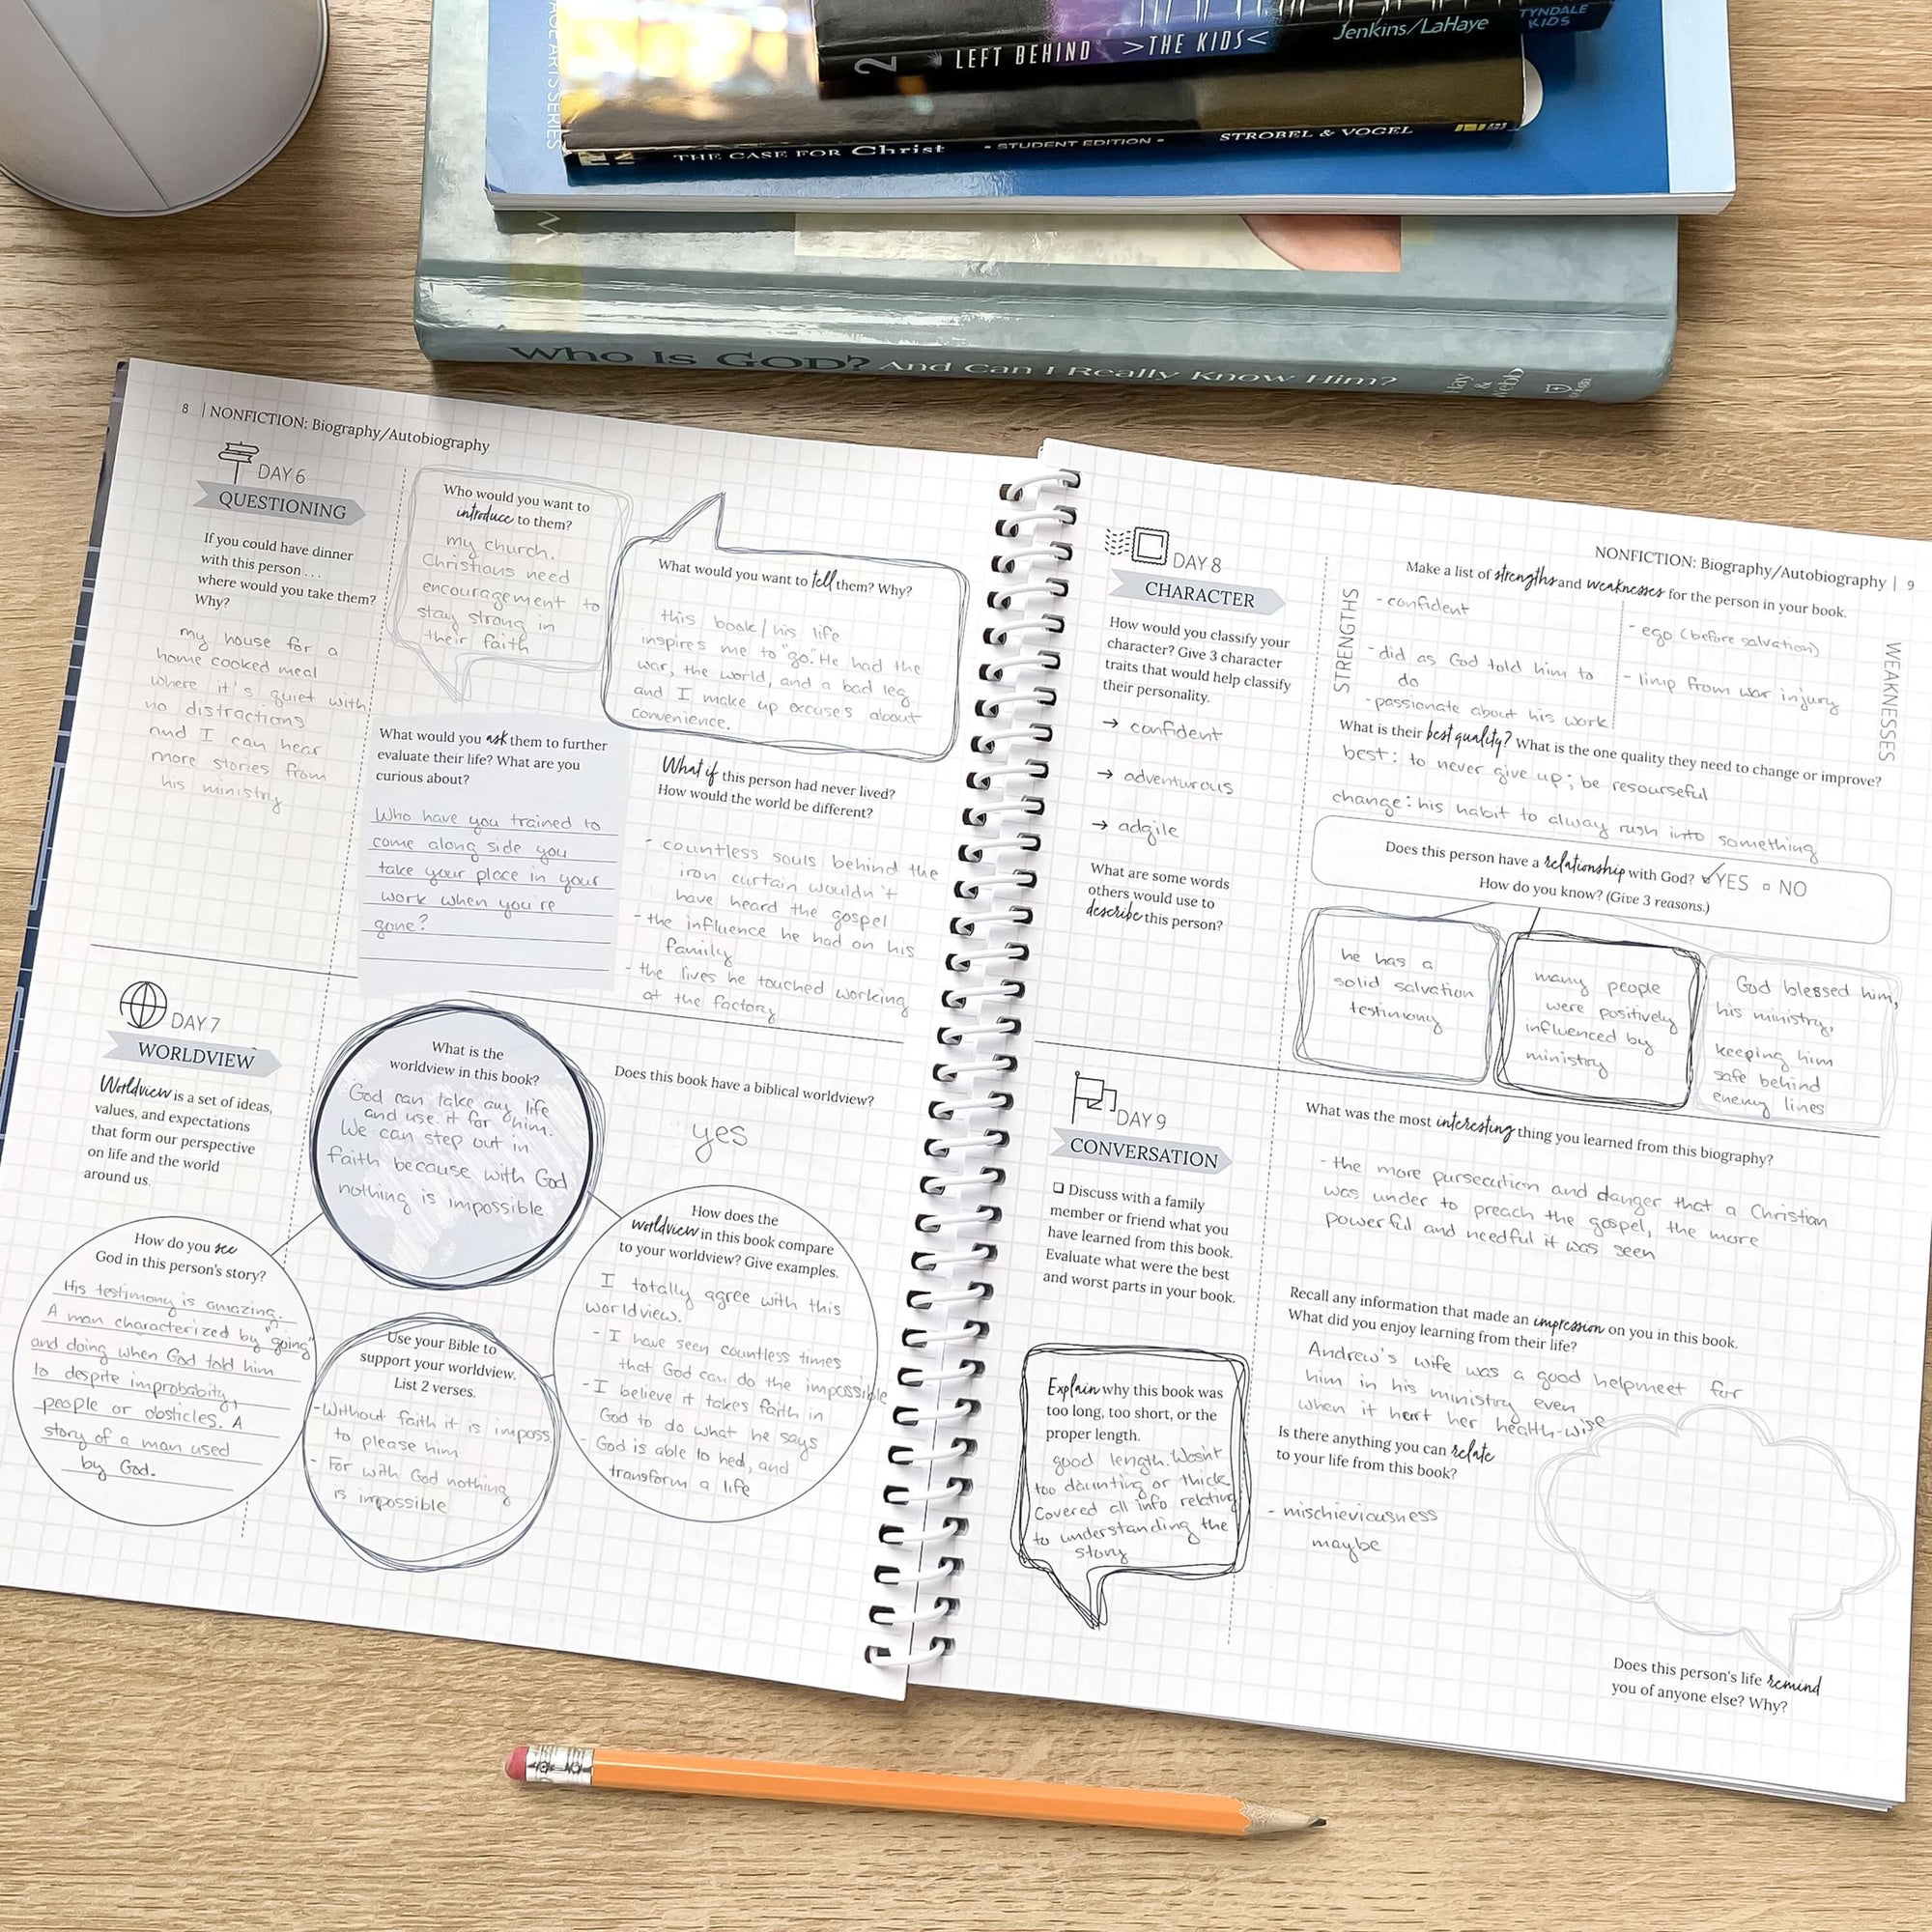 AGE ARTS SERIES
2 LEFT BEHIND >THE KIDS< Jenkins/LaHaye TYNDALE KIDS
THE CASE FOR Christ - STUDENT EDITION - STROBEL & VOGEL
W
Who Is GOD? And Can I Really Know Him?
8 | NONFICTION: Biography/Autobiography
DAY 6
QUESTIONING
If you could have dinner
with this person . . .
where would you take them?
Why?
my house for a
home cooked meal
where it's quiet with
no distractions
and I can hear
more stories from
his ministry
Who would you want to
introduce to them?
my church.
Christians need
encouragement to
stay strong in
their faith
What would you want to tell them? Why?
this book/his life
inspires me to "go." He had the
war, the world, and a bad leg
and I make up excuses about
convenience.
What would you ask them to further
evaluate their life? What are you
curious about?
Who have you trained to
come along side you
take your place in your
work when you're
gone?
What if this person had never lived?
How would the world be different?
- countless souls behind the
iron curtain wouldn't
have heard the gospel
- the influence he had on his
family
- the lives he touched working
at the factory
DAY 7
WORLDVIEW
Worldview is a set of ideas,
values, and expectations
that form our perspective
on life and the world
around us.
What is the
worldview in this book?
God can take any life
and use it for him.
We can step out in
faith because with God
nothing is impossible
Does this book have a biblical worldview?
yes
How do you see
God in this person's story?
His testimony is amazing.
A man characterized by "going"
and doing when God told him
to despite improbabity,
people or obsticles. A
story of a man used
by God.
Use your Bible to
support your worldview.
List 2 verses.
-Without faith it is imposs
to please him
- For with God nothing
is impossible
How does the
worldview in this book compare
to your worldview? Give examples.
I totally agree with this
worldview.
- I have seen countless times
that God can do the impossible
- I believe it takes faith in
God to do what he says
- God is able to hed, and
transform a life
NONFICTION: Biography/Autobiography | 9
DAY 8
CHARACTER
How would you classify your
character? Give 3 character
traits that would help classify
their personality.
→ confident
→ adventurous
→ adgile
What are some words
others would use to
describe this person?
Make a list of strengths and weaknesses for the person in your book.
STRENGTHS
- confident
- did as God told him to
do
- passionate about his work
- ego (before salvation)
- limp from war injury
WEAKNESSES
What is their best quality? What is the one quality they need to change or improve?
best: to never give up; be resourseful
change: his habit to alway rush into something
Does this person have a relationship with God? ✓YES □ NO
How do you know? (Give 3 reasons.)
he has a
solid salvation
testimony
many people
were positively
influenced by
ministry
God blessed him,
his ministry,
keeping him
safe behind
enemy lines
DAY 9
CONVERSATION
❏ Discuss with a family
member or friend what you
have learned from this book.
Evaluate what were the best
and worst parts in your book.
Explain why this book was
too long, too short, or the
proper length.
good length. Wasn't
too daunting or thick
Covered all info relating
to understanding the
story
What was the most interesting thing you learned from this biography?
- the more pursecution and danger that a Christian
was under to preach the gospel, the more
powerful and needful it was seen
Recall any information that made an impression on you in this book.
What did you enjoy learning from their life?
Andrew's wife was a good helpmeet for
him in his ministry even
when it heart her health-wise
Is there anything you can relate
to your life from this book?
- mischieviousness
maybe
Does this person's life remind
you of anyone else? Why?